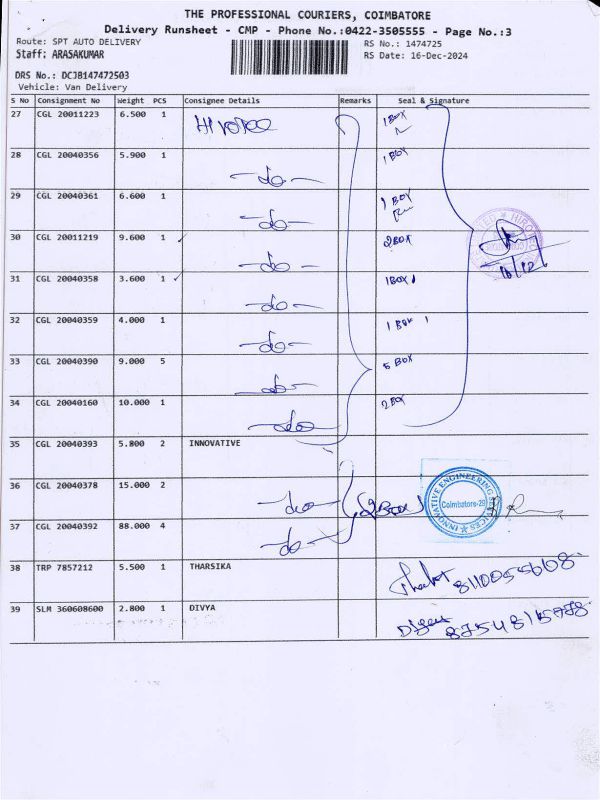 THE PROFESSIONAL COURIERS, COIMBATORE
Delivery Runsheet - CMP - Phone No.:0422-3505555 - Page No.:3
Route: SPT AUTO DELIVERY RS No.: 1474725
Staff: ARASAKUMAR RS Date: 16-Dec-2024
DRS No.: DCJB147472503
Vehicle: Van Delivery
S No Consignment No Weight PCS Consignee Details Remarks Seal & Signature
27 CGL 20011223 6.500 1 1 BOX
28 CGL 20040356 5.900 1 -do- 1 BOX
29 CGL 20040361 6.600 1 -do- 1 BOX
30 CGL 20011219 9.600 1 ✓ -do- 2 BOX
31 CGL 20040358 3.600 1 ✓ -do- 1 BOX
32 CGL 20040359 4.000 1 -do- 1 BOX
33 CGL 20040390 9.000 5 -do- 5 BOX
34 CGL 20040160 10.000 1 -do- 2 BOX
16/12
35 CGL 20040393 5.800 2 INNOVATIVE
36 CGL 20040378 15.000 2 -do-
INNOVATIVE ENGINEERING SERVICES
Coimbatore-29
37 CGL 20040392 88.000 4 -do-
38 TRP 7857212 5.500 1 THARSIKA
39 SLM 360608600 2.800 1 DIVYA